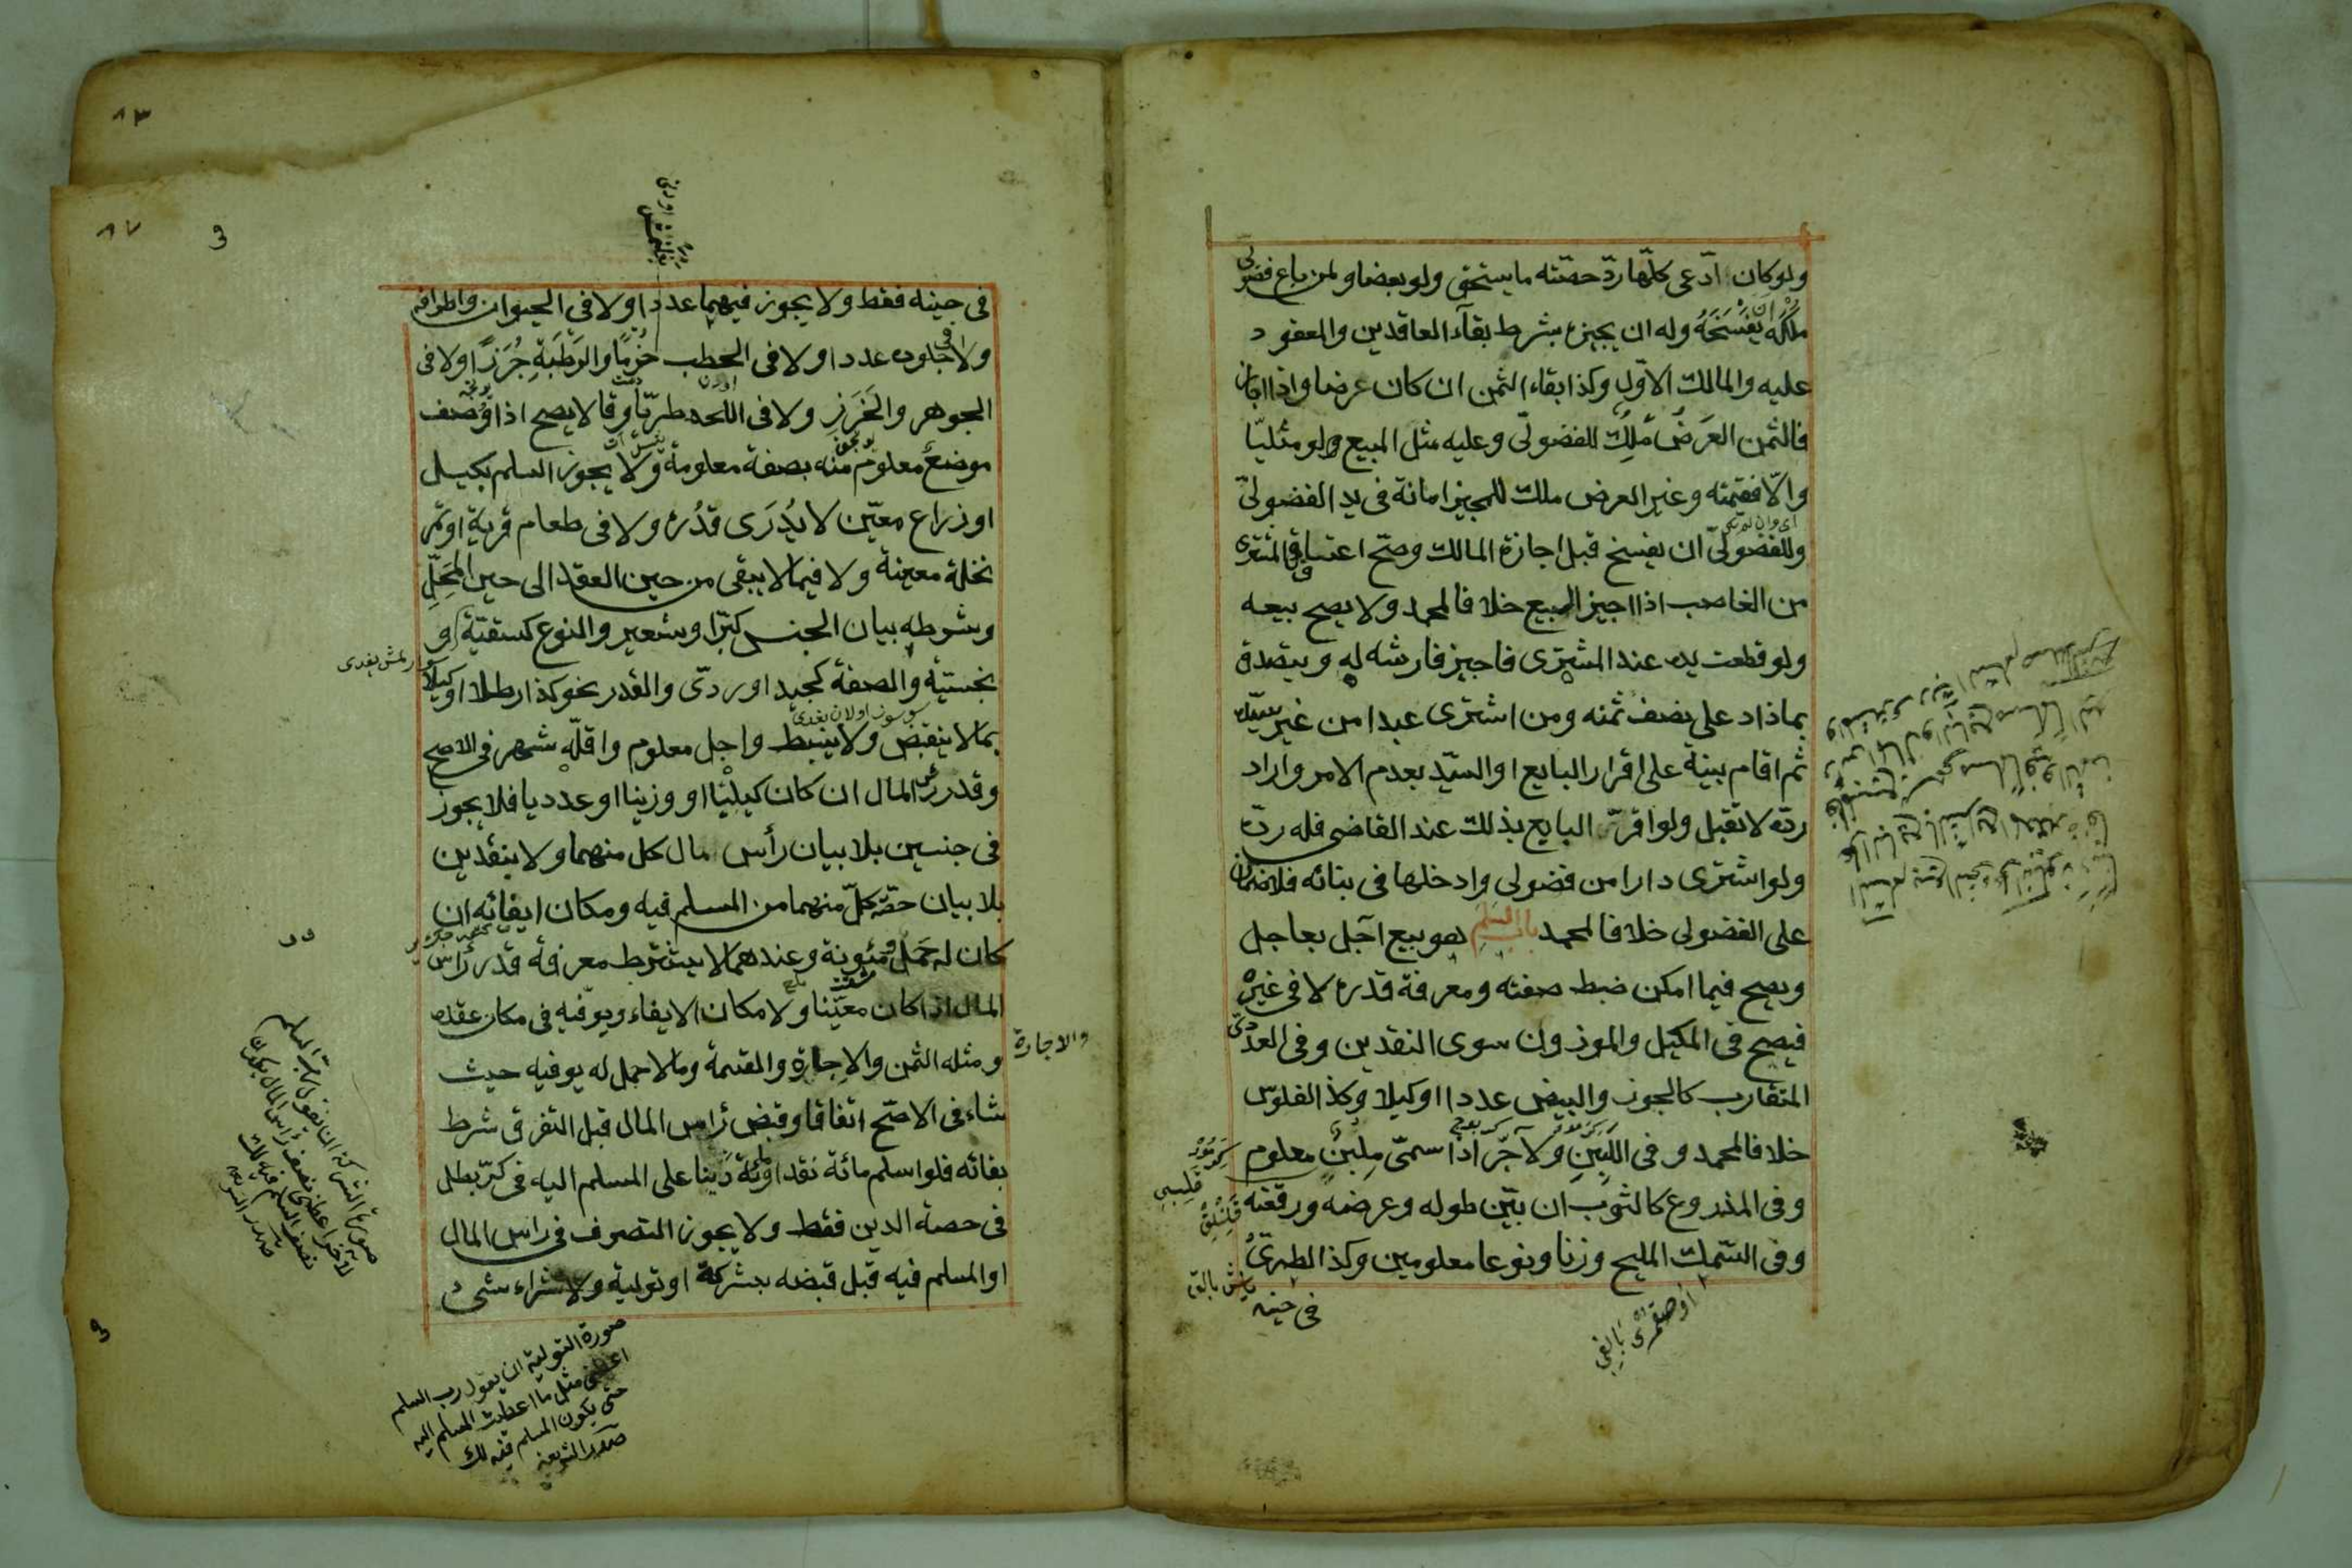 ولو كان ادّعى كلّها ردّ حصّته ما يستحق ولو بعضا ولمن باع فضولى
ملكه ان يفسخه وله ان يجيزه بشرط بقآء العاقدين والمعقود
عليه والمالك الاوّل وكذا بقاء الثمن ان كان عرضا واذا اجاز
فالثمن العَرَض مُلِك للفضولىّ وعليه مثل المبيع ولو مثليّا
والّا فقيمته وغير العرض ملك للمجيز امانة فى يد الفضولىّ
وللفضولىّ ان يفسخ قبل اجازة المالك وصحّ اعتاق المشترى
من الغاصب اذا اجيز المبيع خلافا لمحمد ولا يصح بيعه
ولو قطعت يده عند المشترى فاجيز فارشه له ويتصدق
بما زاد على نصف ثمنه ومن اشترى عبدا من غير سيّده
ثم اقام بينة على اقرار البايع او السيّد بعدم الامر واراد
ردّه لا تقبل ولو اقرّ البايع بذلك عند القاضى فله ردّه
ولو اشترى دارا من فضولى وادخلها فى بنائه فلا ضمان
على الفضولى خلافا لمحمد باب السلم هو بيع آجل بعاجل
ويصح فيما امكن ضبط صفته ومعرفة قدره لا فى غيره
فيصح فى المكيل والموزون سوى النقدين وفى العددىّ
المتقارب كالجوز والبيض عددا او كيلا وكذا الفلوس
خلافا لمحمد وفى اللَّبِنِ ولآجّر اذا سمىّ مِلبنٌ معلوم
وفى المذروع كالثوب ان بيّن طوله وعرضه ورقعته
وفى السّمك المليح وزنا ونوعا معلومين وكذا الطرىّ
فى حينه
فى حينه فقط ولا يجوز فيهما عددا ولا فى الحيوان واطرافه
ولا فى جلوده عددا ولا فى الحطب حُزمًا والرَطبَةِ جُرَزًا ولا فى
الجوهر والخَرَزِ ولا فى اللحد طريّا وقالا يصح اذا وُصف
موضعٌ معلوم منه بصفة معلومة ولا يجوز السلم بكيل
او ذراع معيّن لا يُدرَى قدُره ولا فى طعام قرية او تمر
نخلة معينة ولا فيما لا يبقى من حين العقد الى حين المَحِلِّ
وشرطه بيان الجنس كبرّ او شعير والنوع كسقيّة او
بخستيّة والصفة كجيد او ردّى والقدر نحو كذا رطلا او كيلا
بما لا ينقبض ولا ينبسط واجل معلوم واقلّه شهر فى الاصح
وقدر رأس المال ان كان كيليّا او وزنيا او عدديا فلا يجوز
فى جنسين بلا بيان رأس مال كل منهما ولا بنقدين
بلا بيان حصّة كلّ منهما من المسلم فيه ومكان ايفائه ان
كان له حَمْل ومئونة وعندهما لا يشترط معرفة قدر رأس
المال اذا كان معيّنا ولا مكان الايفاء ويوفيه فى مكان عقده
والاجارة
ومثله الثمن والاجارة والقسمة وما لا حمل له يوفيه حيث
شاء فى الاصّح اتفاقا وقبض رأس المال قبل التفرق شرط
بقائه فلو اسلم مائة نقدا ومائة دَينا على المسلم اليه فى كرّ بطل
فى حصة الدين فقط ولا يجوز التصرف فى رأس المال
او المسلم فيه قبل قبضه بشركة او تولية ولا شراء شىء
صورة التولية ان يقول رب السلم
اعطنى مثل ما اعطيت المسلم اليه
حتى يكون المسلم فيه لك
صدر الشريعة
صورة الشركة ان يقول رب السلم
لاخر اعطنى نصف رأس المال ليكون
نصف المسلم فيه لك
صدر الشريعه
٨٣
٨٧